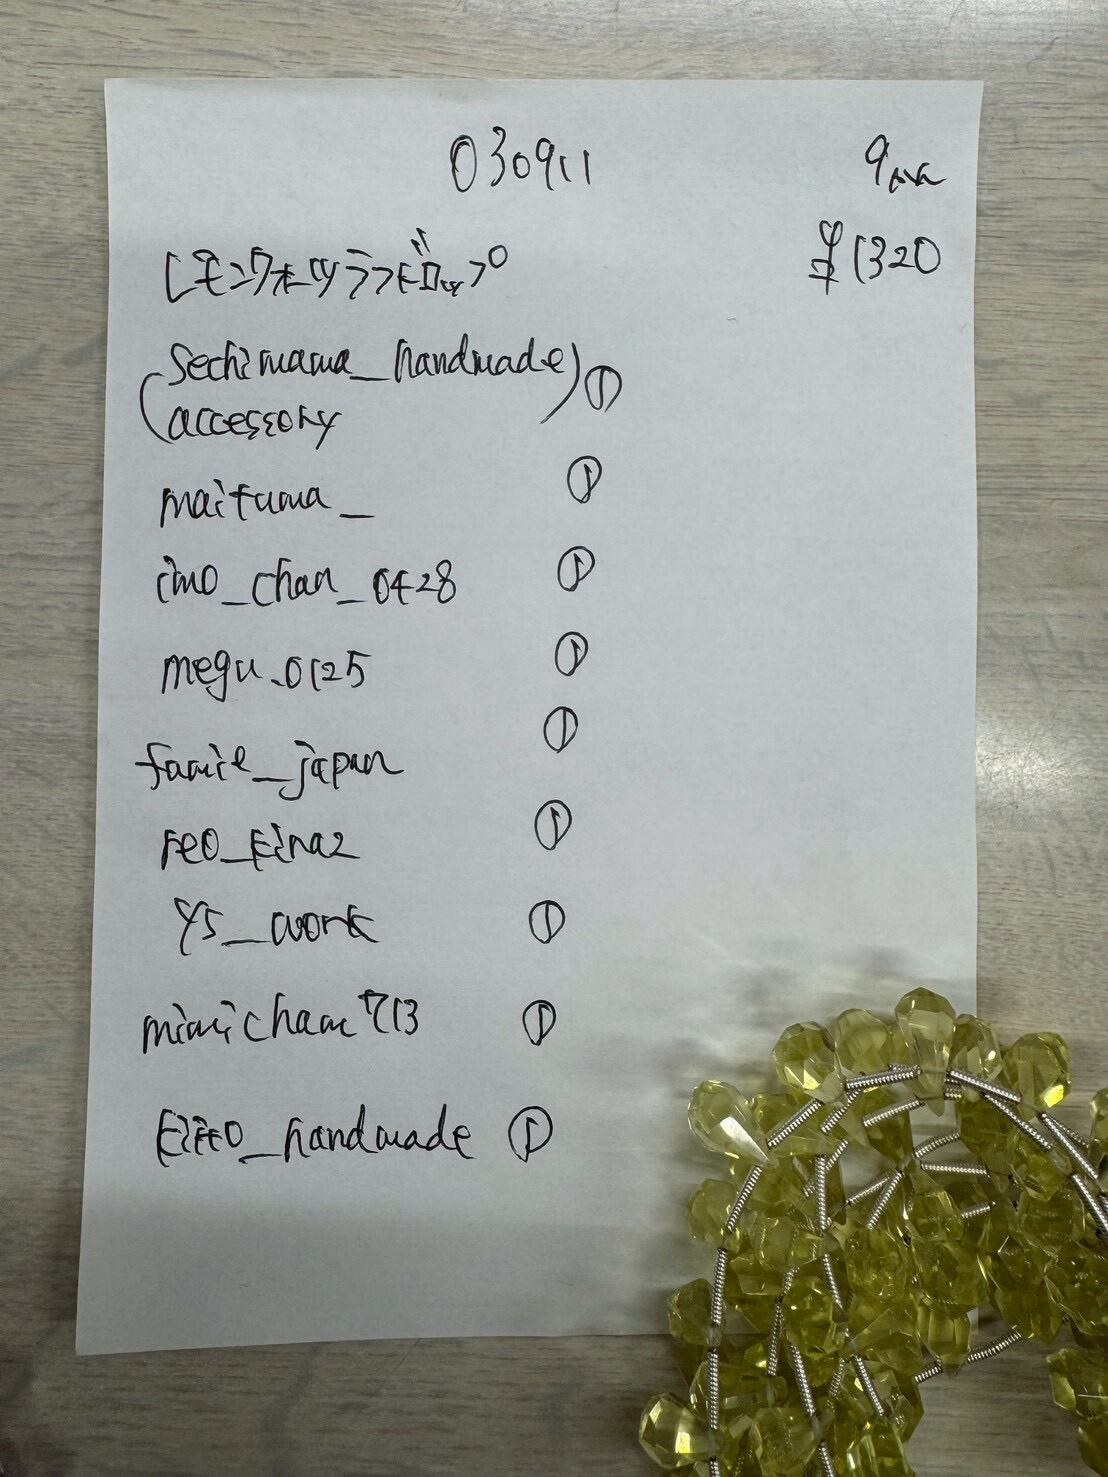 030911
¥1320
レモンクォーツラフドロップ
sechimama_handmade ①
accessory
maituma_ ①
imo_chan_0428 ①
megu.0125 ①
famie_japan ①
reo_kina2 ①
ys_work ①
mimicham713 ①
_handmade ①